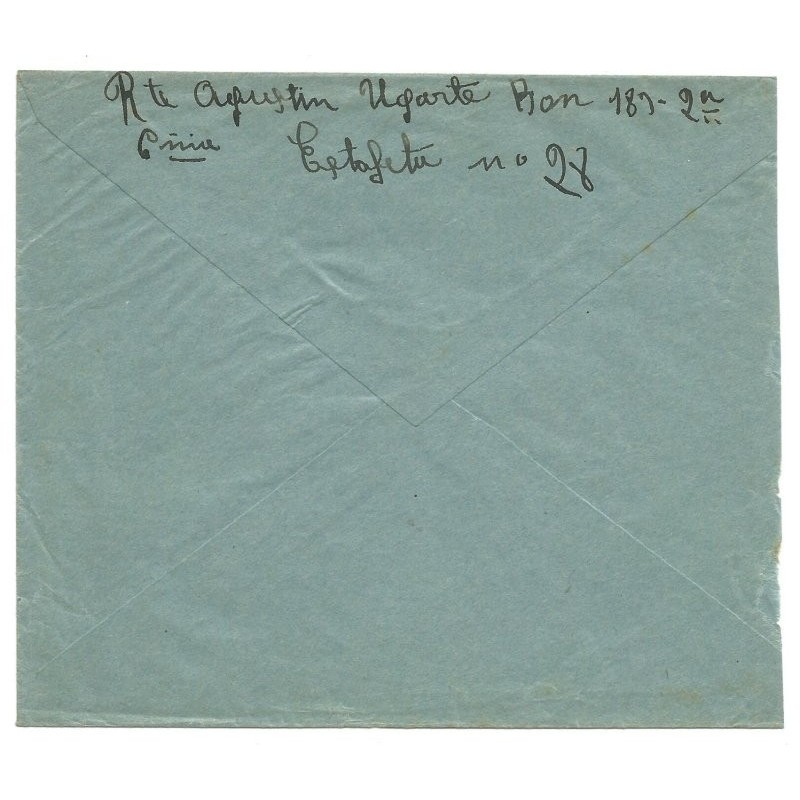 Rte Agustin Ugarte Bon 187-2a
Cñia Estafeta no 28